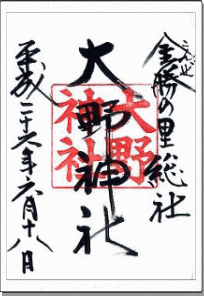 こんぜ
金勝の里総社
大野神社
大野
神社
平成二十六年六月十八日